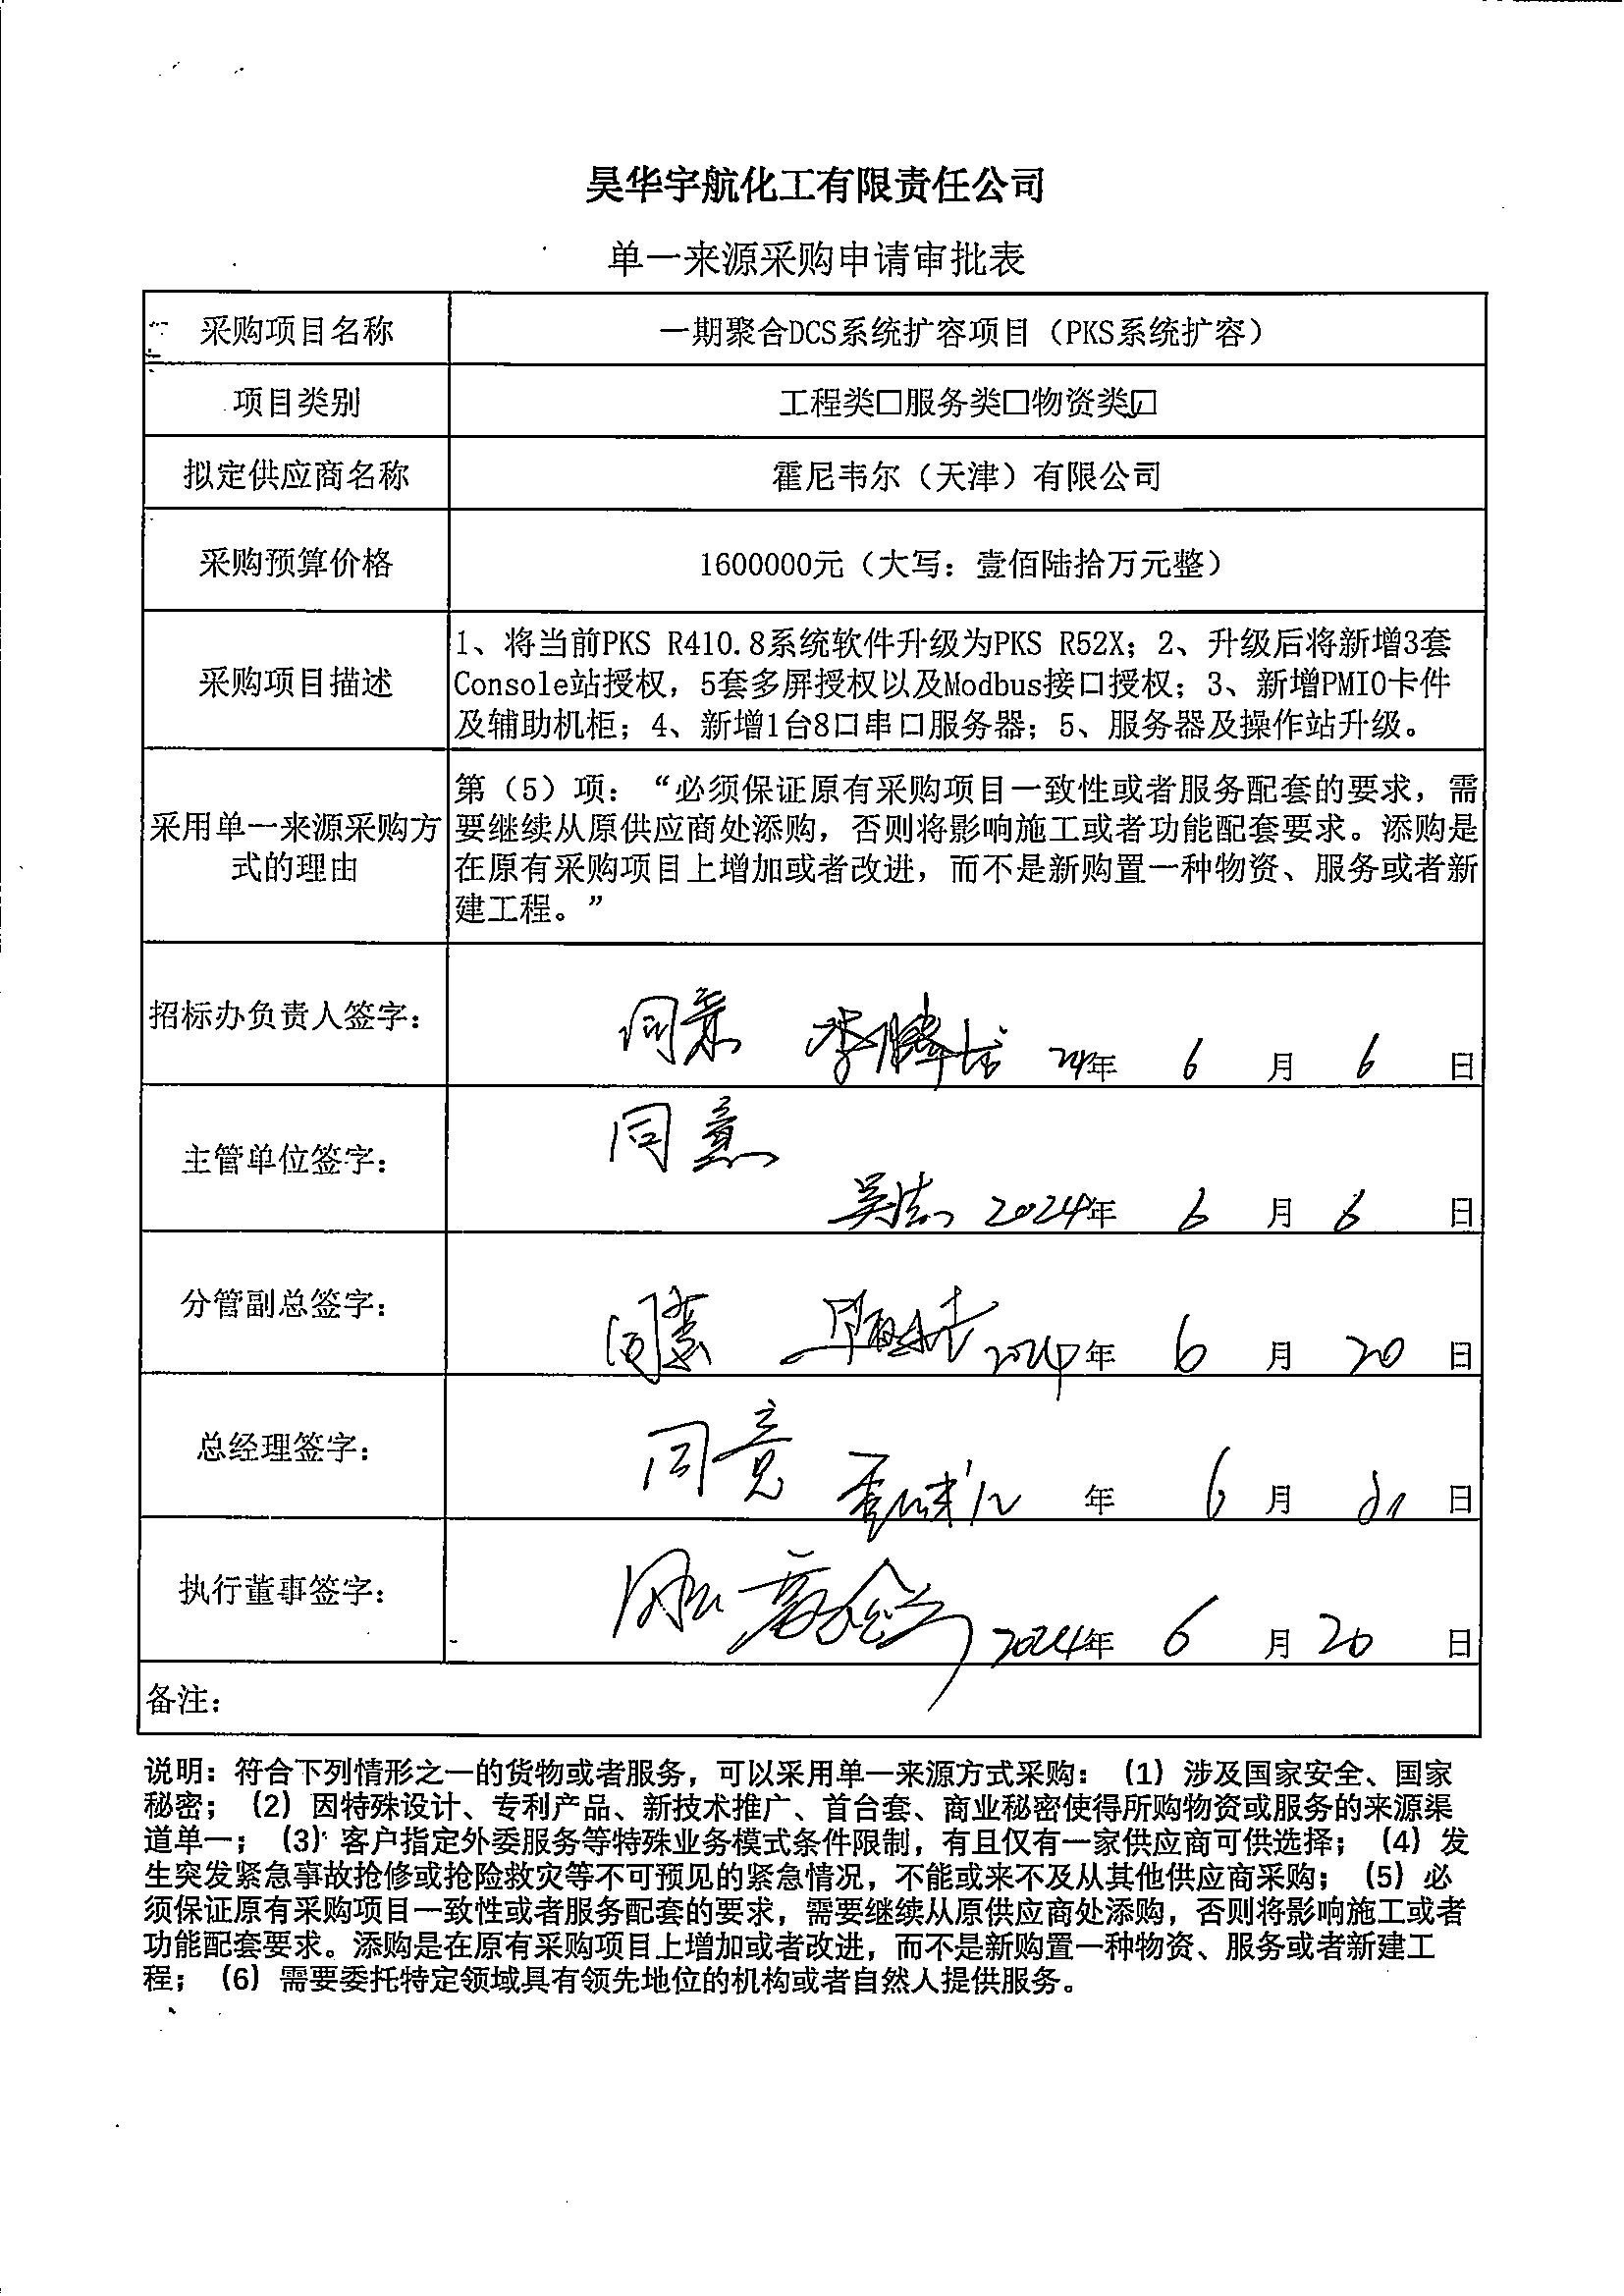 昊华宇航化工有限责任公司
单一来源采购申请审批表
采购项目名称
一期聚合DCS系统扩容项目（PKS系统扩容）
项目类别
工程类□服务类□物资类☑
拟定供应商名称
霍尼韦尔（天津）有限公司
采购预算价格
1600000元（大写：壹佰陆拾万元整）
采购项目描述
1、将当前PKS R410.8系统软件升级为PKS R52X；2、升级后将新增3套
Console站授权，5套多屏授权以及Modbus接口授权；3、新增PMIO卡件
及辅助机柜；4、新增1台8口串口服务器；5、服务器及操作站升级。
采用单一来源采购方
式的理由
第（5）项：“必须保证原有采购项目一致性或者服务配套的要求，需
要继续从原供应商处添购，否则将影响施工或者功能配套要求。添购是
在原有采购项目上增加或者改进，而不是新购置一种物资、服务或者新
建工程。”
招标办负责人签字：
同意 24年 6 月 6 日
主管单位签字：
同意
2024年 6 月 6 日
分管副总签字：
同意 2024年 6 月 20 日
总经理签字：
同意 年 6 月 日
执行董事签字：
同意 2024年 6 月 20 日
备注：
说明：符合下列情形之一的货物或者服务，可以采用单一来源方式采购：（1）涉及国家安全、国家
秘密；（2）因特殊设计、专利产品、新技术推广、首台套、商业秘密使得所购物资或服务的来源渠
道单一；（3）客户指定外委服务等特殊业务模式条件限制，有且仅有一家供应商可供选择；（4）发
生突发紧急事故抢修或抢险救灾等不可预见的紧急情况，不能或来不及从其他供应商采购；（5）必
须保证原有采购项目一致性或者服务配套的要求，需要继续从原供应商处添购，否则将影响施工或者
功能配套要求。添购是在原有采购项目上增加或者改进，而不是新购置一种物资、服务或者新建工
程；（6）需要委托特定领域具有领先地位的机构或者自然人提供服务。